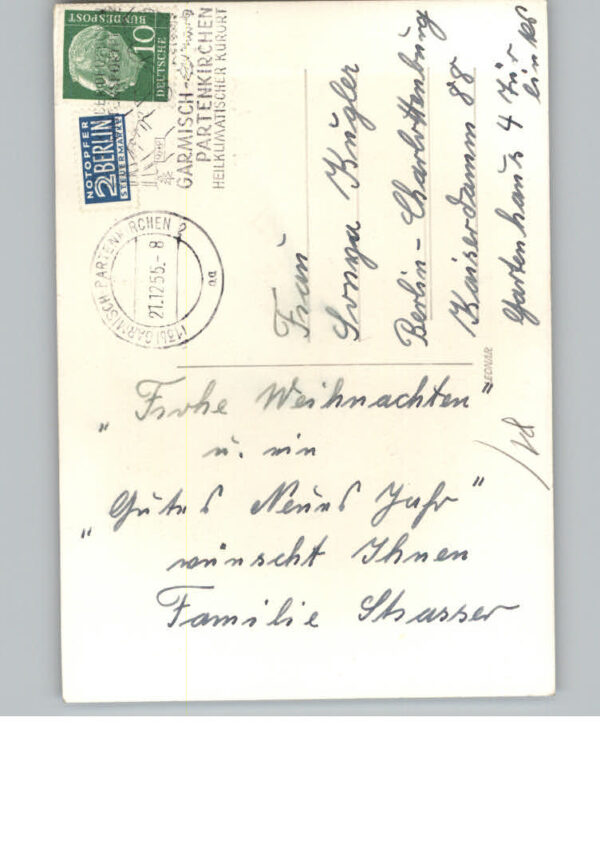 DEUTSCHE
BUNDESPOST
10
NOTOPFER
2 BERLIN
STEUERMARKE
GARMISCH-
PARTENKIRCHEN
HEILKLIMATISCHER KURORT
(13b) GARMISCH-PARTENKIRCHEN 2
21.12.55.-8
aa
Frau
Sonya Kugler
Berlin-Charlottenburg
Kaiserdamm 88
Gartenhaus 4 Tür
links
LEONAR
"Frohe Weihnachten"
u. ein
"Gutes Neues Jahr"
wünscht Ihnen
Familie Strasser